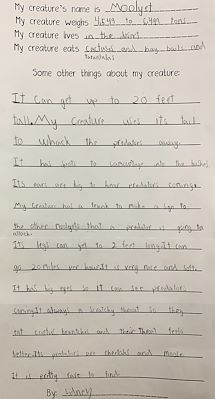 My creature's name is Moolyst
My creature weighs 4,549 to 6,499 tons
My creature lives in the desert
My creature eats cactuses and bay bails and
tarantulas
Some other things about my creature:
It can get up to 20 feet
tall. My creature uses its tail
to whack the predators away.
It has spots to camouflage into the bushes.
Its ears are big to hear predators coming.
My creature has a trunk to make a sign to
the other that a predator is going to
attack.
Its legs can get to 2 feet long. It can
go 20 miles per hour. It is very nice and soft.
It has big eyes so it can see predators
coming. It always a scratchy throat so they
eat cactus branches and their throat feels
better. Its predators are cheetahs and moose.
It is pretty rare to find.
By: Sidney